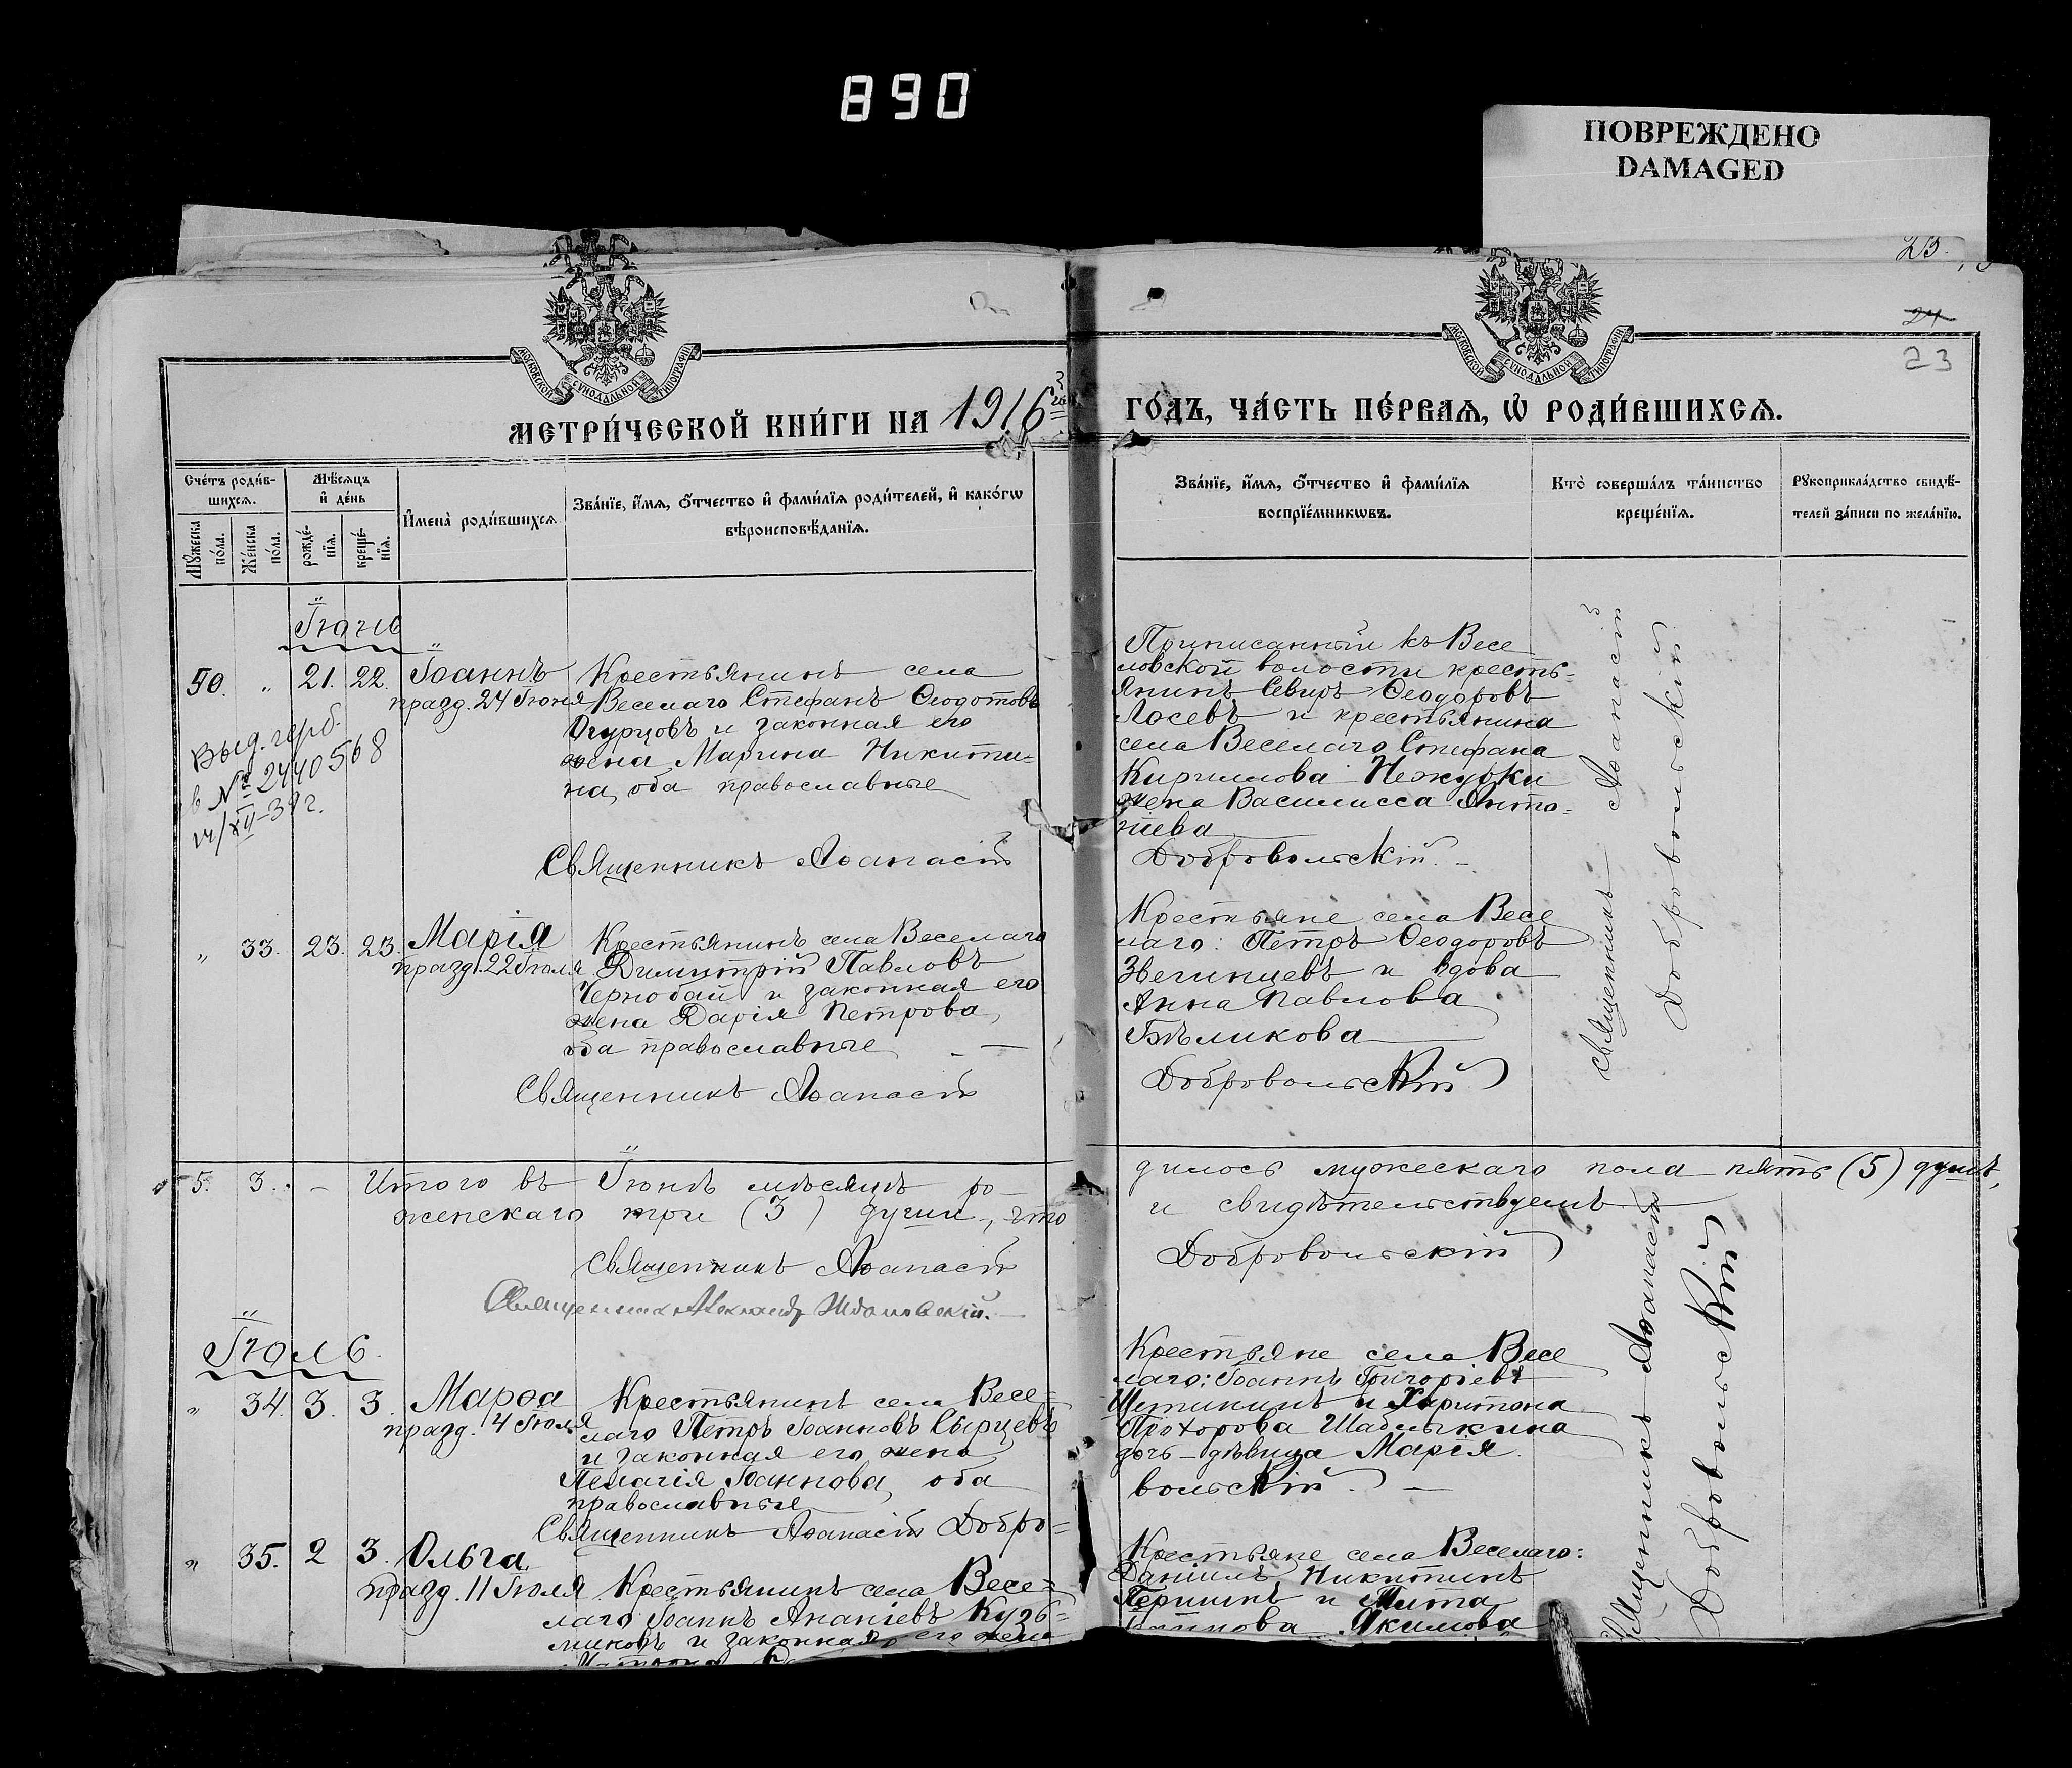 890
ПОВРЕЖДЕНО
DAMAGED
25.
24
23
МОСКОВСКОЙ СѴНОДАЛЬНОЙ ТИПОГРАФІИ
МОСКОВСКОЙ СѴНОДАЛЬНОЙ ТИПОГРАФІИ
МЕТРИ́ЧЕСКОЙ КНИ́ГИ НА 1916 ГО́ДЪ, ЧА́СТЬ ПЕ́РВАѦ, Ѽ РОДИ́ВШИХСѦ.
Сче́тъ роди́в-
шихся.
Мѣ́сяцъ
и҆ де́нь
Мꙋжеска по́ла.
Же́нска по́ла.
рожде́-
нїя.
креще́-
нїя.
И҆мена̀ роди́вшихся
Зва́нїе, и҆́мя, ѻ҆́тчество и҆ фами́лїя роди́телей, и҆ како́гѡ
вѣроисповѣ́данїя.
Зва́нїе, и҆́мя, ѻ҆́тчество и҆ фами́лїя
воспрїе́мникѡвъ.
Кто̀ соверша́лъ та́инство
креще́нїя.
Рꙋкоприкла́дство свидѣ́-
телей за́писи по жела́нїю.
Іюнь
50. " 21. 22. Іоаннъ
празд. 24 Іюня
Крестьянинъ села
Веселаго Стефанъ Ѳеодотовъ
Огурцовъ и законная его
жена Марина Никити-
на, оба православные
Выд. герб.
в № 2440568
XII-39 г.
Приписанный къ Весе
ловской волости кресть-
янинъ Севиръ Ѳеодоровъ
Лосевъ и крестьянина
села Веселаго Стефана
Кириллова Нежурки
жена Василисса Анто-
нiева
Священникъ Аѳанасій Добровольскій.
Священникъ Аѳанасій
Добровольскій
" 33. 23. 23. Марія
празд. 22 Іюля
Крестьянинъ села Веселаго
Димитрій Павловъ
Чернобай и законная его
жена Дарія Петрова,
оба православные
Крестьяне села Весе
лаго: Петръ Ѳеодоровъ
Звегинцевъ и вдова
Анна Павлова
Бѣликова
Священникъ Аѳанасій Добровольскій
5. 3. – Итого въ Іюнѣ мѣсяцѣ ро- дилось мужескаго пола пять (5) душъ,
женскаго три (3) души, что и свидѣтельствуемъ
Священникъ Аѳанасій Добровольскій
Священникъ Александр
Іюль
" 34. 3. 3. Марѳа
празд. 4 Іюля
Крестьянинъ села Весе-
лаго Петръ Іоанновъ Сырцевъ
и законная его жена
Пелагія Іоаннова, оба
православные
Крестьяне села Весе
лаго: Іоаннъ Григоріевъ
Щетининъ и Харитона
Прохорова Шаблыкина
дочь – дѣвица Марія.
Священникъ Аѳанасій Добро- вольскій.
Священникъ Аѳанасій
Добровольскій
" 35. 2 3. Ольга
празд. 11 Іюля
Крестьянинъ села Весе-
лаго Іоаннъ Ананіевъ Кузь-
миновъ и законная его жена
Крестьяне села Веселаго:
Даніилъ Никитинъ
Першинъ и
Якимова